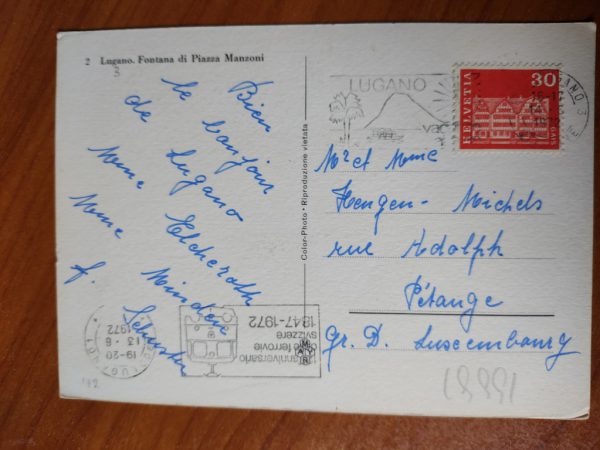 2 Lugano. Fontana di Piazza Manzoni
Bien
le bonjour
de Lugano
Mme Elcheroth
Mme Minden
f. Schuster
Color-Photo • Riproduzione vietata
LUGANO
HELVETIA
30
GAIS
Mr et Mme
Hengen-Michels
rue Adolph
Pétange
Gr. D. Luxembourg
anniversario
delle ferrovie
svizzere
1847-1972
19-20
13.-6
1972